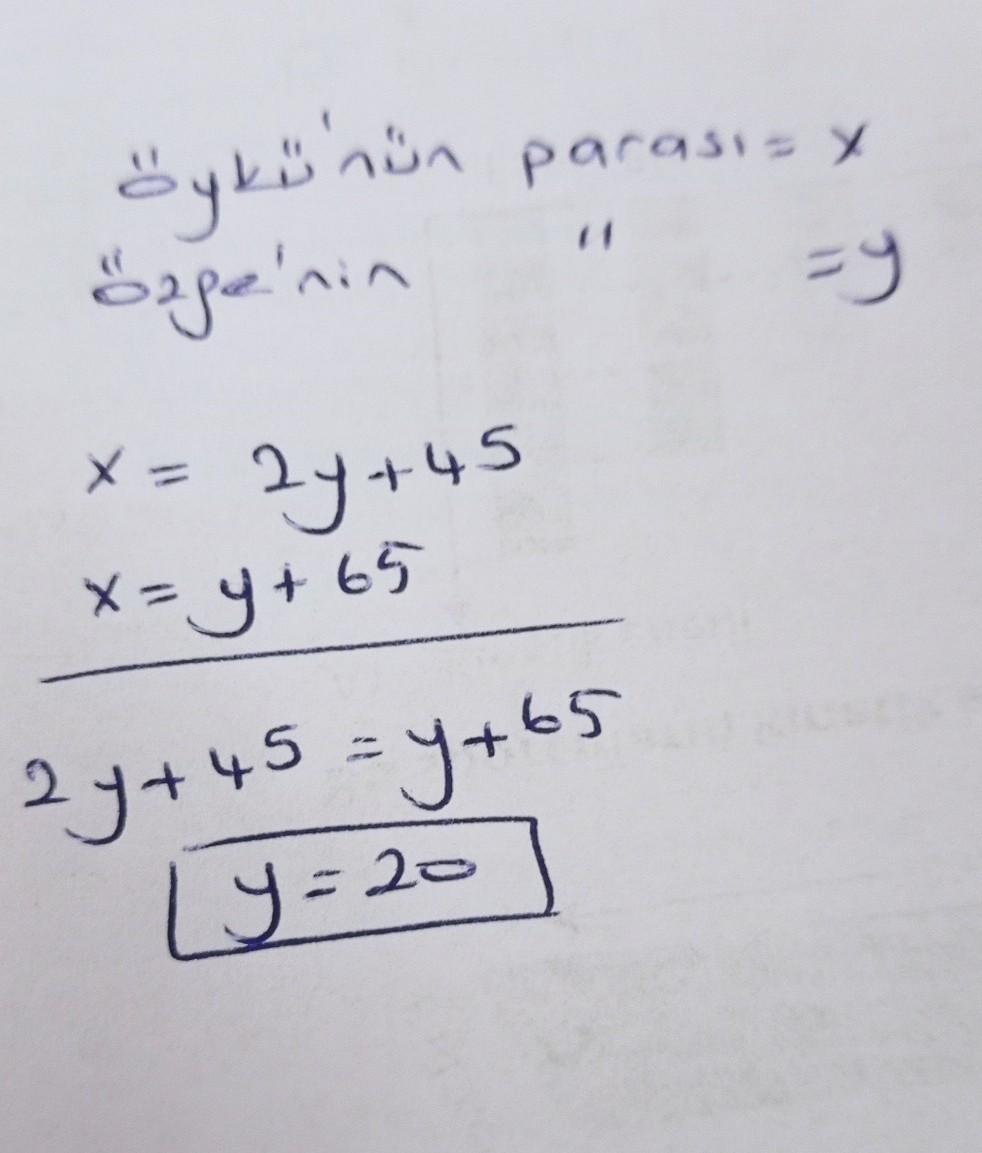 Öykü'nün parası = x
Özge'nin " = y
x = 2y + 45
x = y + 65
2y + 45 = y + 65
y = 20